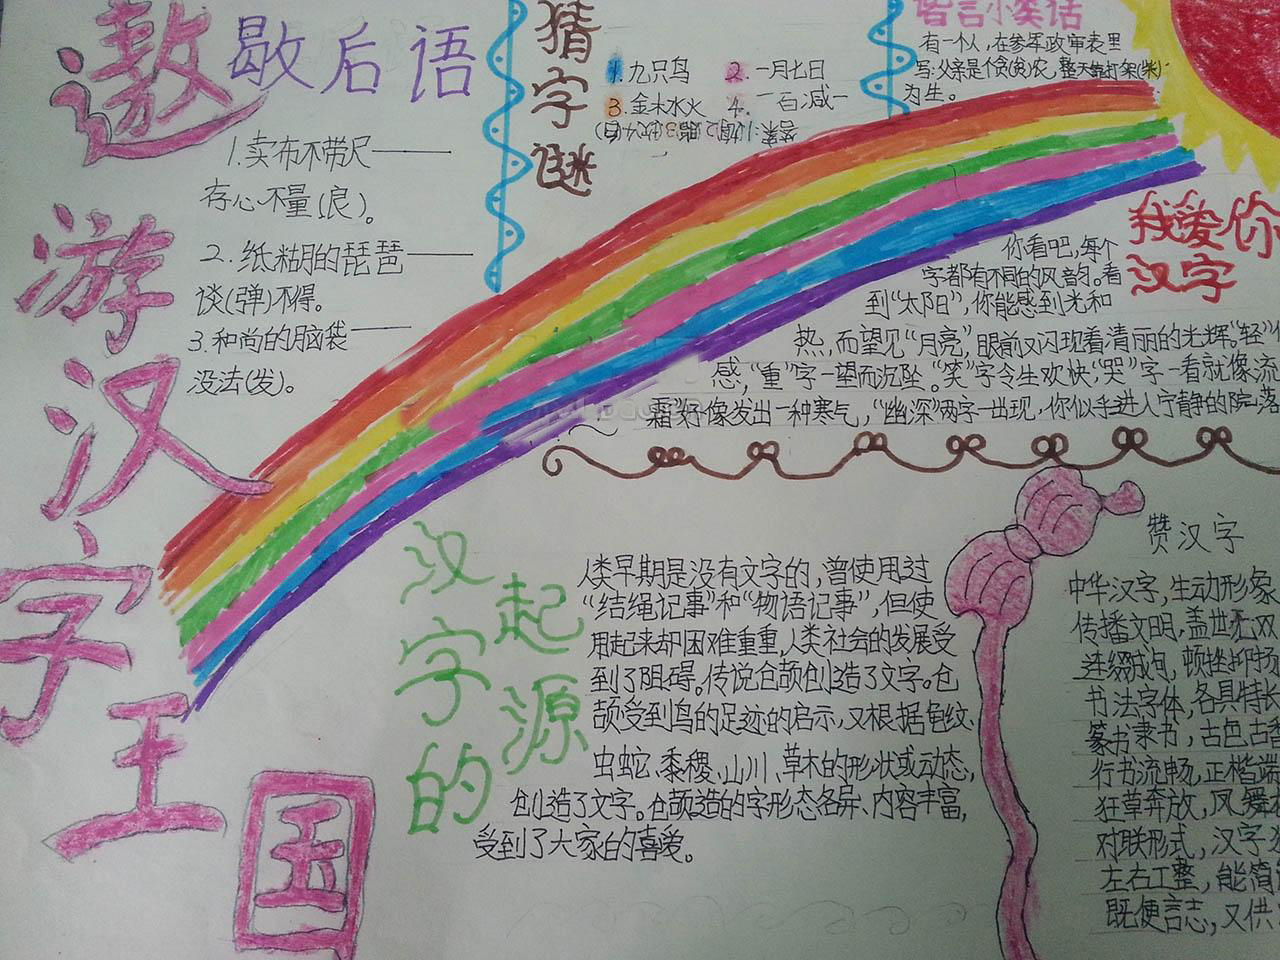 遨游汉字王国
歇后语
1.卖布不带尺——
存心不量(良)。
2.纸糊的琵琶——
谈(弹)不得。
3.和尚的脑袋——
没法(发)。
猜字谜
1.九只鸟 2.一月七日
3.金木水火 4.一百减一
谐音小笑话
有一个人,在参军政审表里
写:父亲是个贪(贫)农,整天靠打架(柴)
为生。
我爱你
汉字
你看吧,每个
字都有不同的风韵。看
到“太阳”,你能感到光和
热,而望见“月亮”,眼前又闪现着清丽的光辉。“轻”
感,“重”字一望而沉坠。“笑”字令生欢快,“哭”字一看就像流
霜”好像发出一种寒气,“幽深”两字一出现,你似乎进入宁静的院落
汉字的
起源
人类早期是没有文字的,曾使用过
“结绳记事”和“物语记事”,但使
用起来却困难重重,人类社会的发展受
到了阻碍。传说仓颉创造了文字。仓
颉受到鸟的足迹的启示,又根据龟纹、
虫蛇、黍稷、山川、草木的形状或动态,
创造了文字。仓颉造的字形态各异、内容丰富,
受到了大家的喜爱。
赞汉字
中华汉字,生动形象
传播文明,盖世无双
连缀成词,顿挫抑扬
书法字体,各具特长
篆书隶书,古色古香
行书流畅,正楷端
狂草奔放,凤舞
对联形式,汉字
左右工整,能简
既便言志,又供